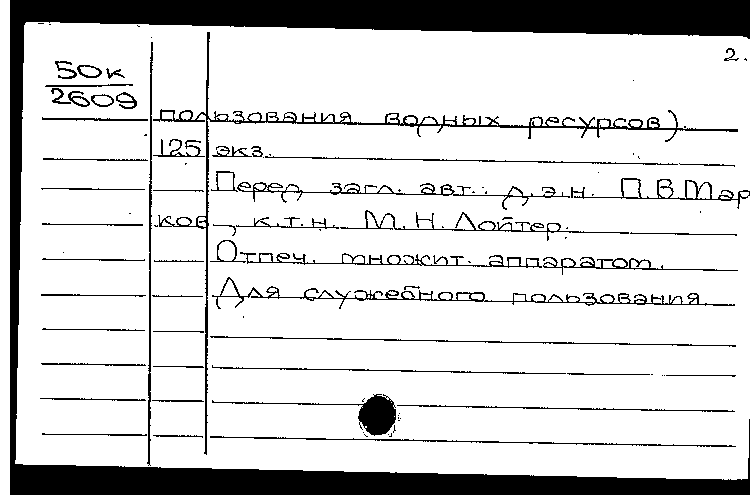 2.
50к
2609
пользования водных ресурсов)
125 экз.
Перед загл. авт.: д.э.н. П.В.Мар
ков, к.т.н. М.Н.Лойтер.
Отпеч. множит. аппаратом.
Для служебного пользования.